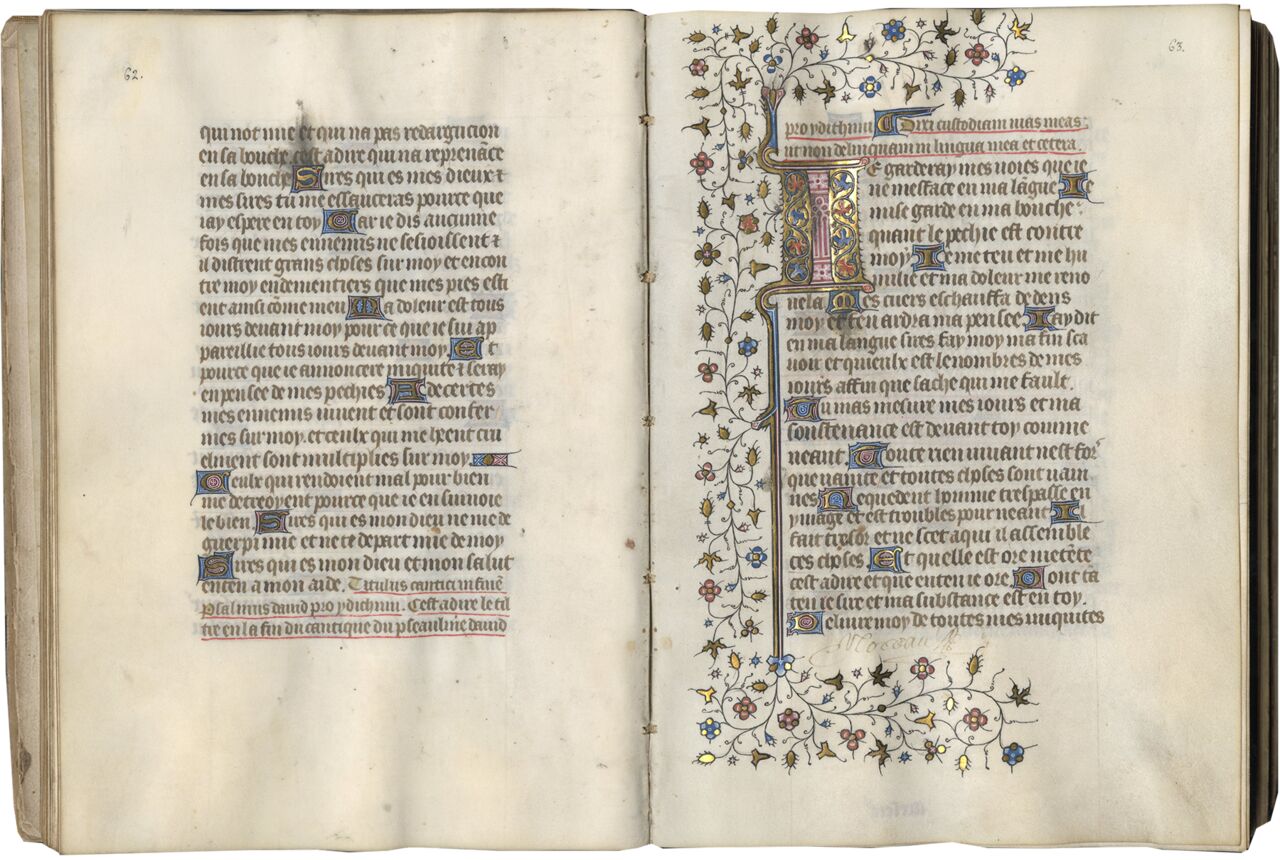 62.
qui not mie et qui na pas redargucion
en sa bouche cest adire qui na reprenāce
en sa bouche Sires qui es mes dieux ⁊
mes sires tu me essauceras pource que
iay espere en toy Car ie dis aucunne
fois que mes ennemis ne sesioissent ⁊
il distrent grans choses sur moy et en con
tre moy endementiers que mes pies esti
ent ainsi cōme meu Ma doleur est tous
iours deuant moy pour ce que ie sui ap
pareillie tous iours deuant moy Et
pource que ie annoncere iniquite ⁊ seray
en pensee de mes pechies Adecertes
mes ennemis uiuent et sont confer
mes sur moy. et ceulx qui me heent cru
elment sont multiplies sur moy
Ceulx qui rendoient mal pour bien
me detreoyent pource que ie ensuiuoie
le bien Sires qui es mon dieu ne me de
guerpi mie et ne te depart mīe de moy
Sires qui es mon dieu et mon salut
enten a mon aide. Titulus cantici in finē
Psalmus dauid pro ydithun. Cest adire le til
tre en la fin du cantique du pseaulme dauid
63.
pro ydithun Dixi custodiam uias meas:
ut non delinquam in lingua mea et cetera.
IE garderay mes uoies que ie
ne mefface en ma lāgue Ie
mise garde en ma bouche:
quant le pechie est contre
moy Ie me teu et me hu
milie et ma doleur me reno
uela Mes cuers eschauffa de dens
moy et feu ardra ma pensee Iay dit
en ma langue sires fay moy ma fin sca
uoir et quieulx est le nombres de mes
iours affin que sache qui me fault.
Tu mas mesure mes iours et ma
soustenance est deuant toy comme
neant. Toute rien uiuant nest fors
que uanite et toutes choses sont uain
nes Nequedent homme trespasse en
ymage et est troubles pour neant Il
fait tresor et ne scet a qui il assemble
ces choses. Et quelle est ore mētēte
cest adire et que enten ie ore Dont ta
ten ie sire et ma substance est en toy.
Deliure moy de toutes mes iniquites
Moreau